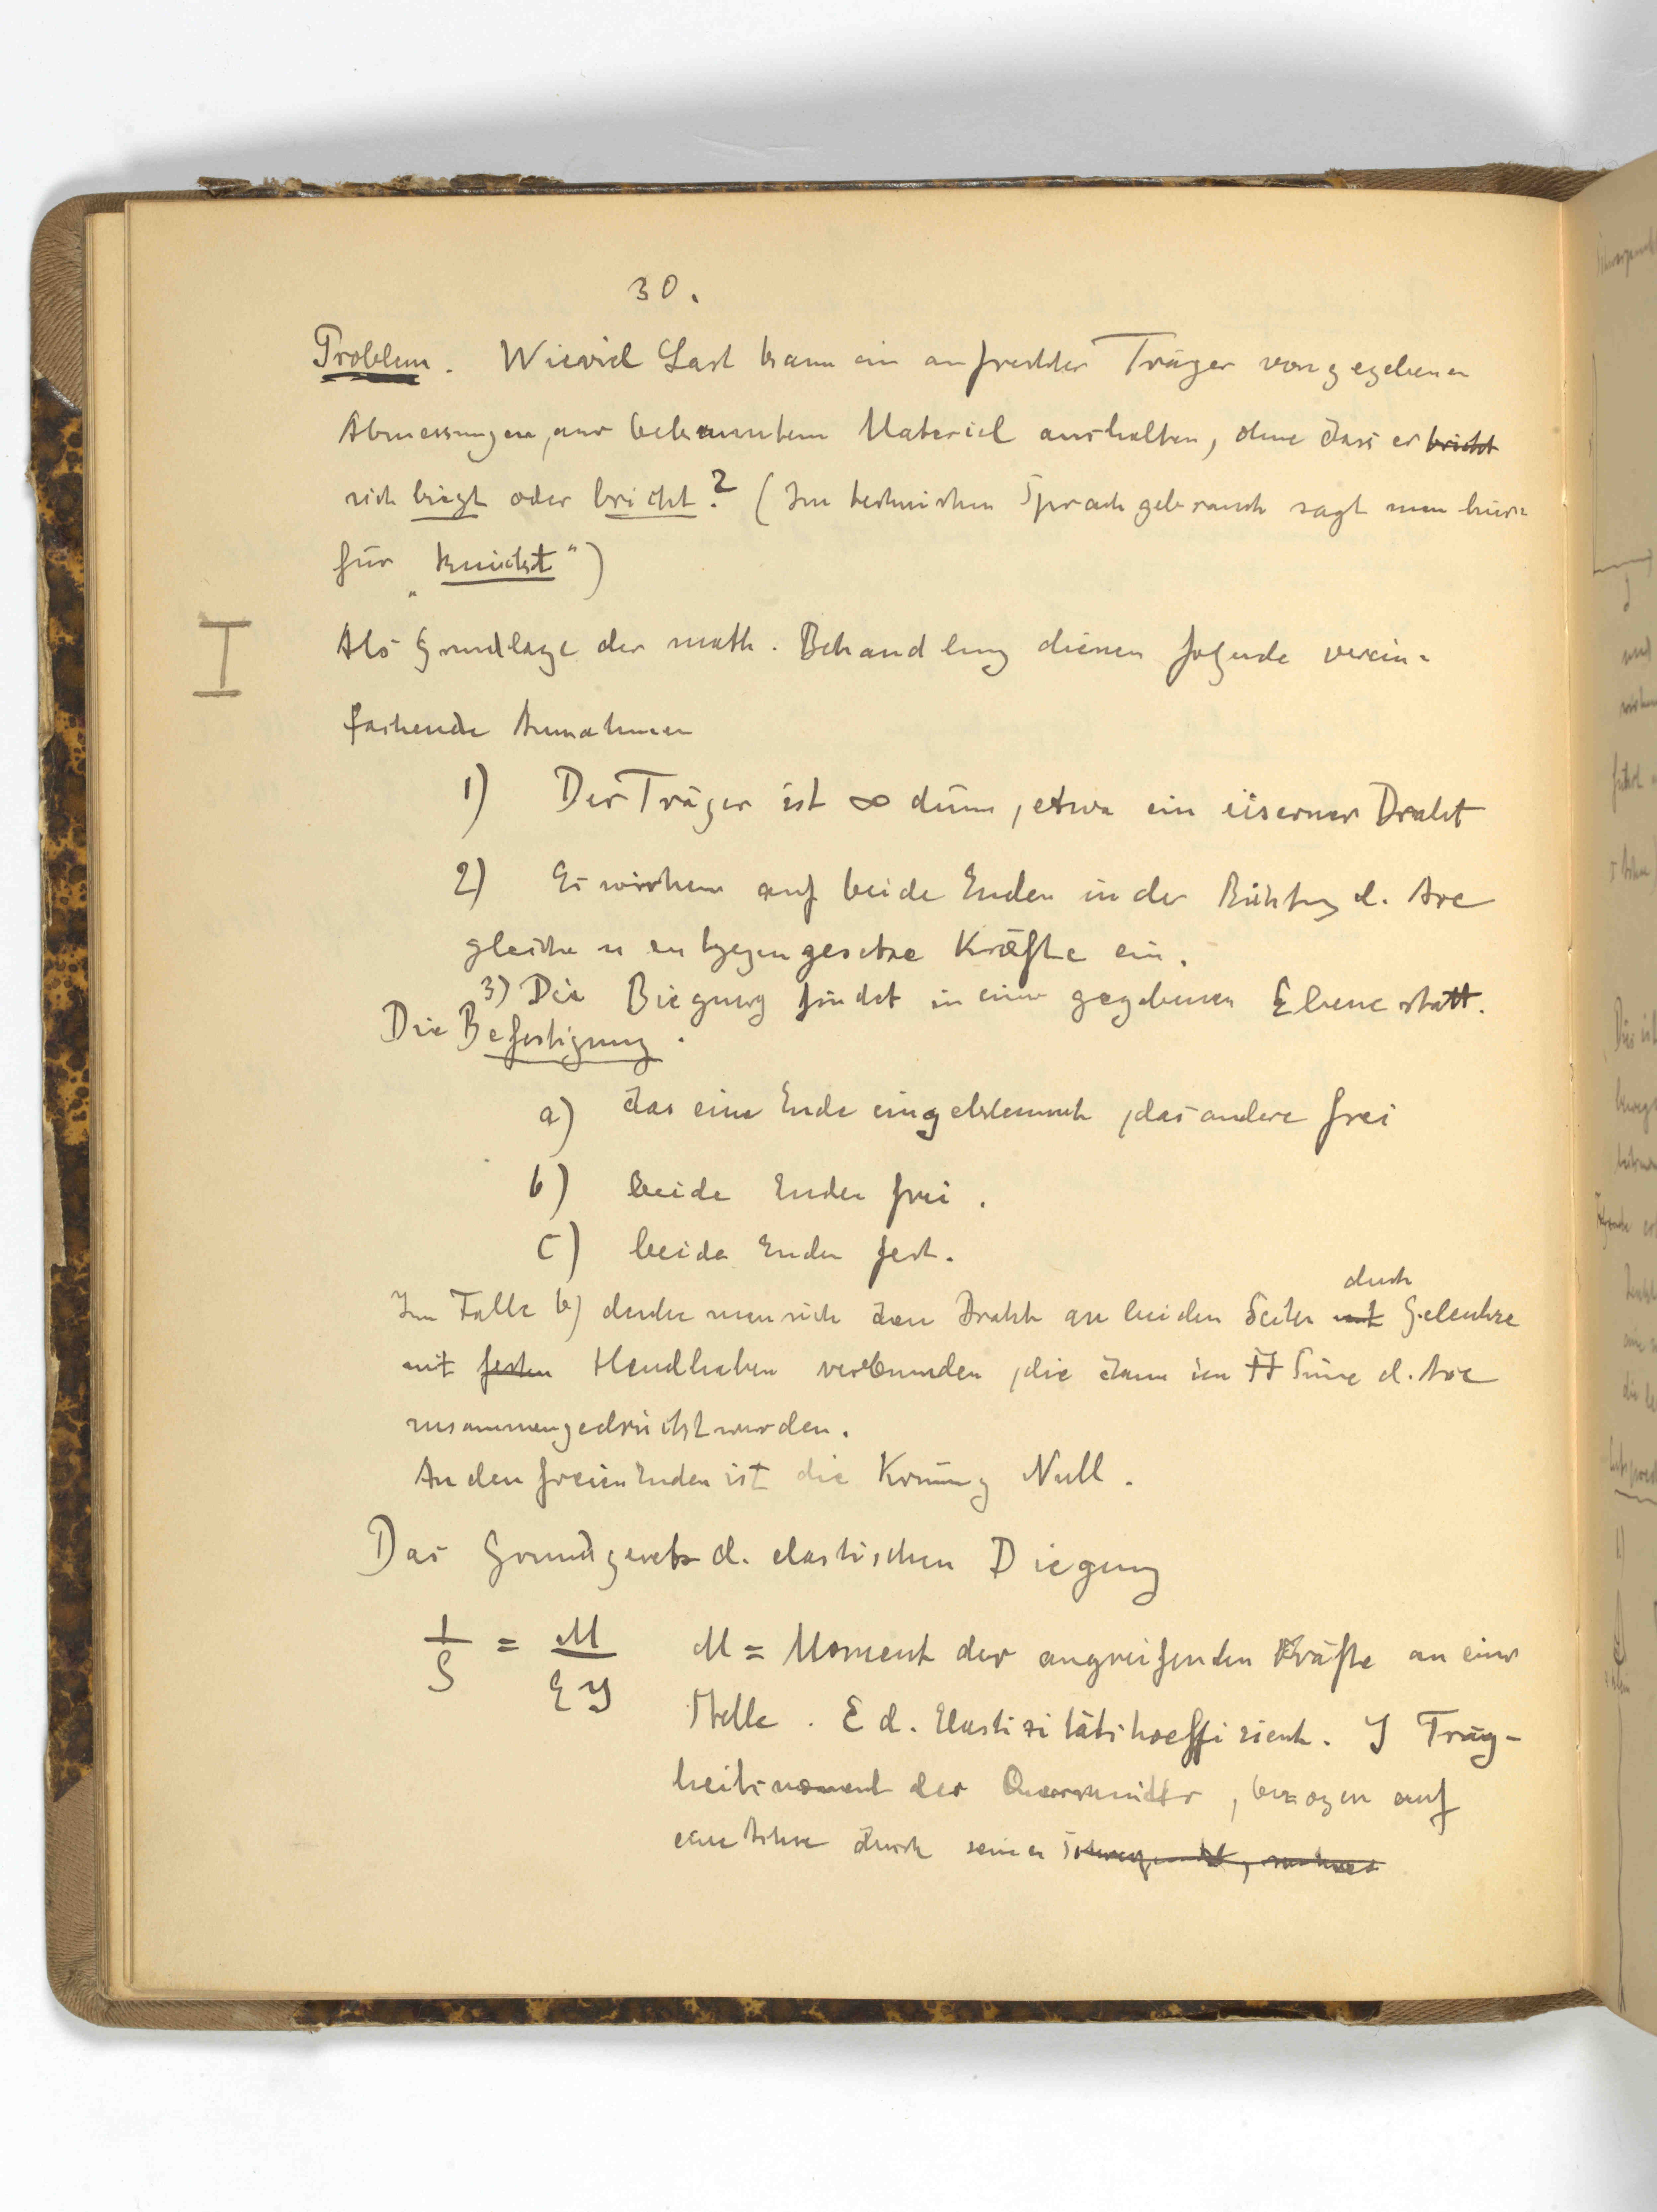 30.
Problem. Wieviel Last kann ein aufrechter Träger von gegebenen
Abmessungen, aus bekanntem Material aushalten, ohne dass er bricht
sich biegt oder bricht? (Im technischen Sprachgebrauch sagt man hier=
für „knickt“)
I
Als Grundlage der math. Behandlung dienen folgende verein=
fachende Annahmen
1) Der Träger ist ∞ dünn, etwa ein eiserner Draht
2) Es wirken auf beide Enden in der Richtung d. Axe
gleiche u entgegengesetze Kräfte ein.
3) Die Biegung findet in einer gegebenen Ebene statt.
Die Befestigung.
a) das eine Ende eingeklemmt, das andere frei
b) beide Enden frei.
c) beide Enden fest.
durch
Im Falle b) denke man sich den Draht an beiden Seiten mit Gelenke
mit festen Handhaben verbunden, die dann im Sinne d. Axe
zusammengedrückt wurden.
An den freien Enden ist die Krümg Null.
Das Grundgesetz d. elastischen Biegung
1/ρ = M/EJ M = Moment der angreifenden Kräfte an einer
Stelle. E d. Elastizitätskoeffizient. J Träg-
heitsmoment des Querschnittes, bezogen auf
eine Achse durch seinen Schwerpunkt,